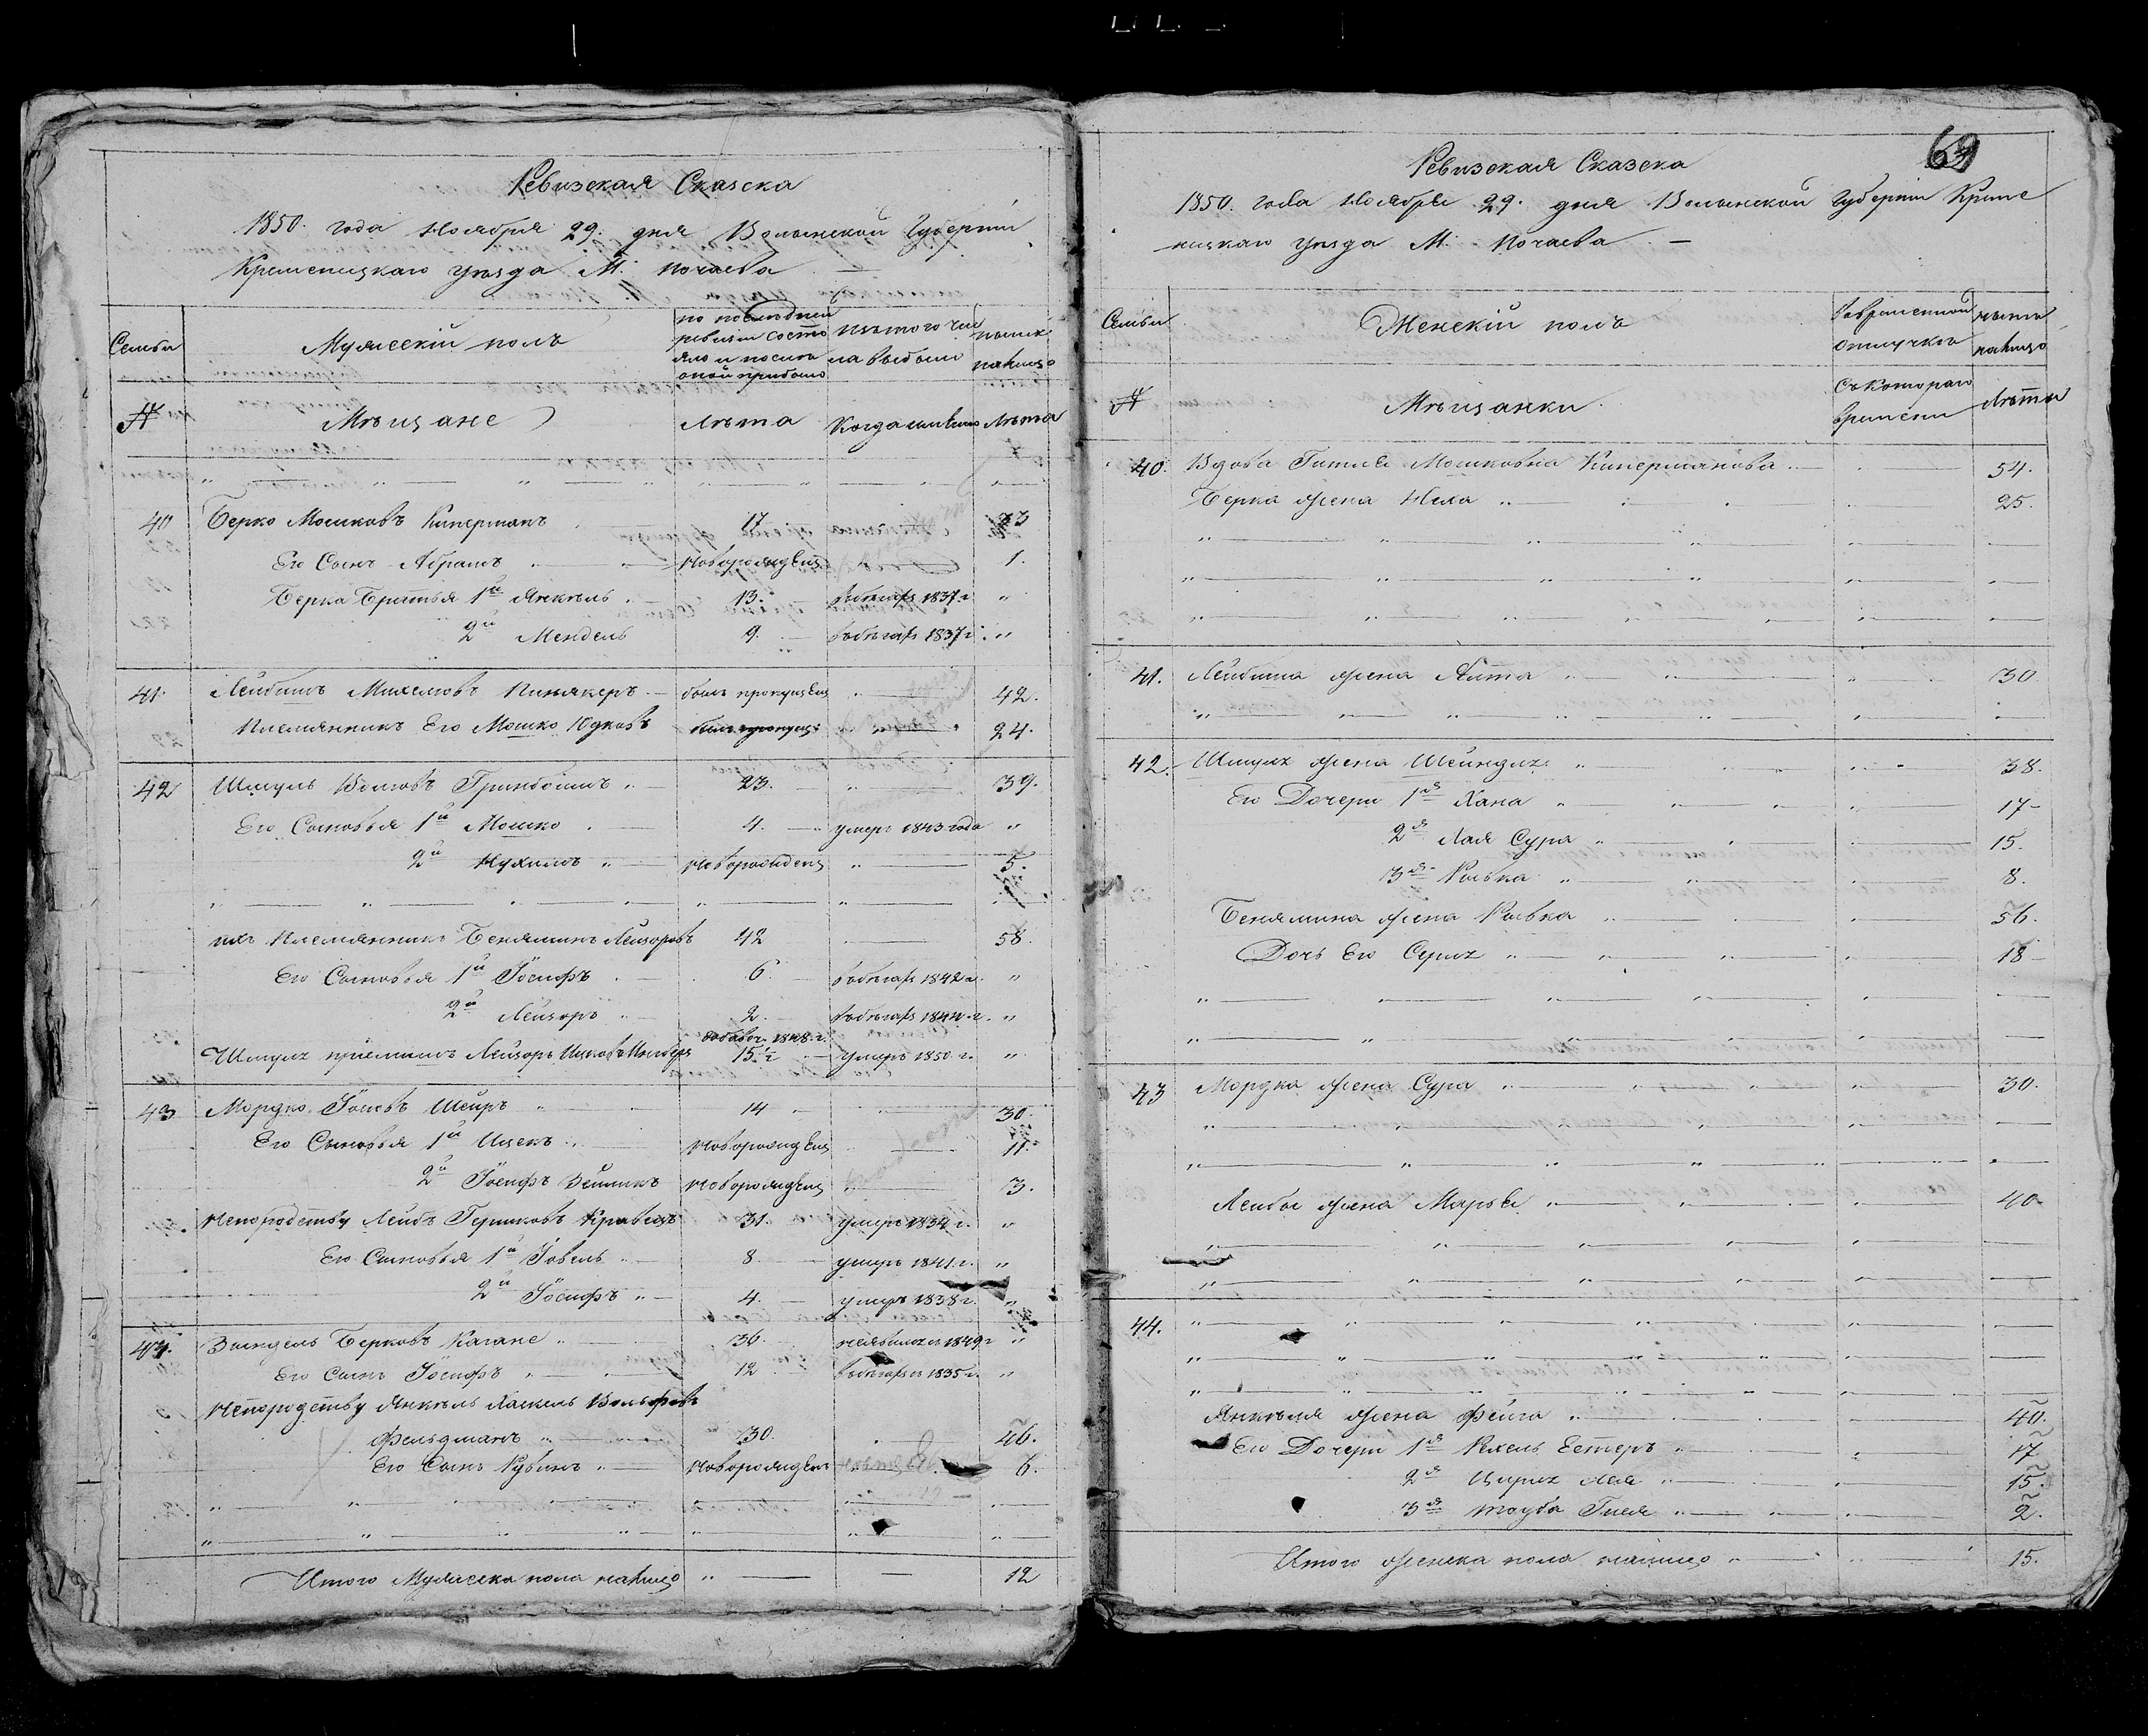 Ревизская Сказска
1850. года Ноября 29. дня Волынской Губерніи
Кременицкаго уезда М. Почаева —
Семьи
Мужескій полъ
по последней ревизіи состояло и после оной прибыло
изъ того числа выбыло
ныне налицо
№
Мѣщане
Лѣта
Когда именно
Лѣта
40 Берко Мошковъ Киперманъ 17 33
Его Сынъ Абрамъ Новорожденъ 1.
Берка Братья 1й Янкель 13. въ бегахъ 1837 г. "
2й Мендель 9. въ бегахъ 1837 г. "
41. Лейбишъ Михелювъ былъ пропущенъ 42.
Племянникъ Его Мошко Юдковъ былъ пропущ: 24.
42 Шмуль Волковъ Гринбоимъ 23. 39.
Его Сыновья 1й Мошко 4. умеръ 1843 года "
2й Нухимъ Новорожденъ 5.
ихъ Племянникъ Беняминъ Лейзоровъ 42 58.
Его Сыновья 1й Іосифъ 6. въ бегахъ 1842 г. "
2й Лейзоръ 2. въ бегахъ 1844 г. "
добавоч. 1848. г.
Шмуля пріемышъ Лейзоръ 15. умеръ 1850 г. "
43 Мордко Іосевъ Шейръ 14 30.
Его Сыновья 1й Ицекъ Новорожденъ 11.
2й Іосифъ Зейликъ Новорожденъ 3.
Непородству Лейбъ Гершковъ Кравецъ 31. умеръ 1834 г. "
Его Сыновья 1й Іовель 8 умеръ 1841. г. "
2й Іосифъ 4. умеръ 1838 г. "
44. Зиндель Берковъ Кагане 36. неявился 1849 г "
Его Сынъ Іосифъ 12 въ бегахъ 1835 г. "
Непородству Янкель Хаскель Вольфовъ
Фельдманъ 30. 46.
Его Сынъ Рувинъ Новорожденъ 6.
Итого Мужеска пола налицо 12
69
Ревизская Сказска
1850. года Ноября 29. дня Волынской Губерніи Креме
ницкаго уезда М. Почаева —
Семьи
Женскій полъ
Во временной отлучкѣ
ныне налицо
№
Мѣщанки.
Съ котораго времени
Лѣта
40. Вдова Гитля Мошковна Киперманова 54.
Берка жена Неха 25.
41. Лейбиша жена Аита 30
42. Шмуля жена Шейндля 38.
Его Дочери 1я Хана 17
2я Хая Сура 15.
3я Ривка 8.
Бенямина жена Ривка 56.
Дочь Его Серля 18
43 Мордка жена Сура 30.
Лейбы жена Марья 40
44.
Янкеля жена Фейга 40.
Его Дочери 1я Рехель Естеръ 17
2я Цирля Лея 15.
3я Тауба Гиля 2.
Итого женска пола налицо 15.